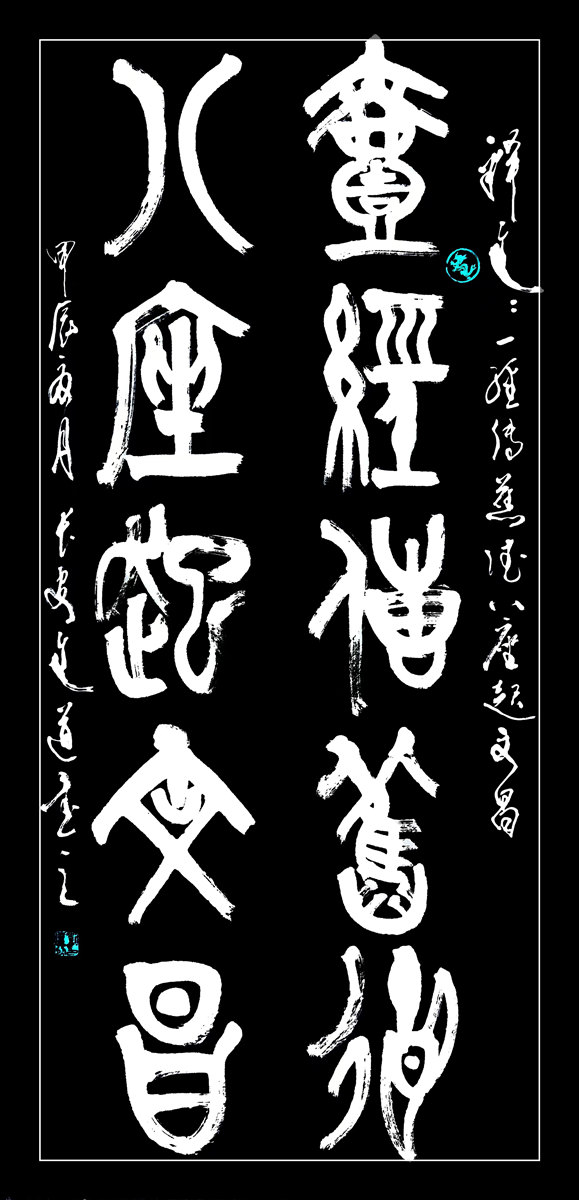 釋文：一經傳舊德八座起文昌
壹經傳舊德
八座起文昌
甲辰夏月 長安